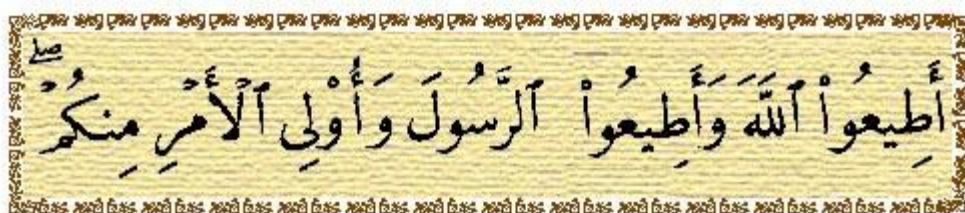 أَطِيعُواْ ٱللَّهَ وَأَطِيعُواْ ٱلرَّسُولَ وَأُوْلِي ٱلْأَمْرِ مِنكُمْ ۖ